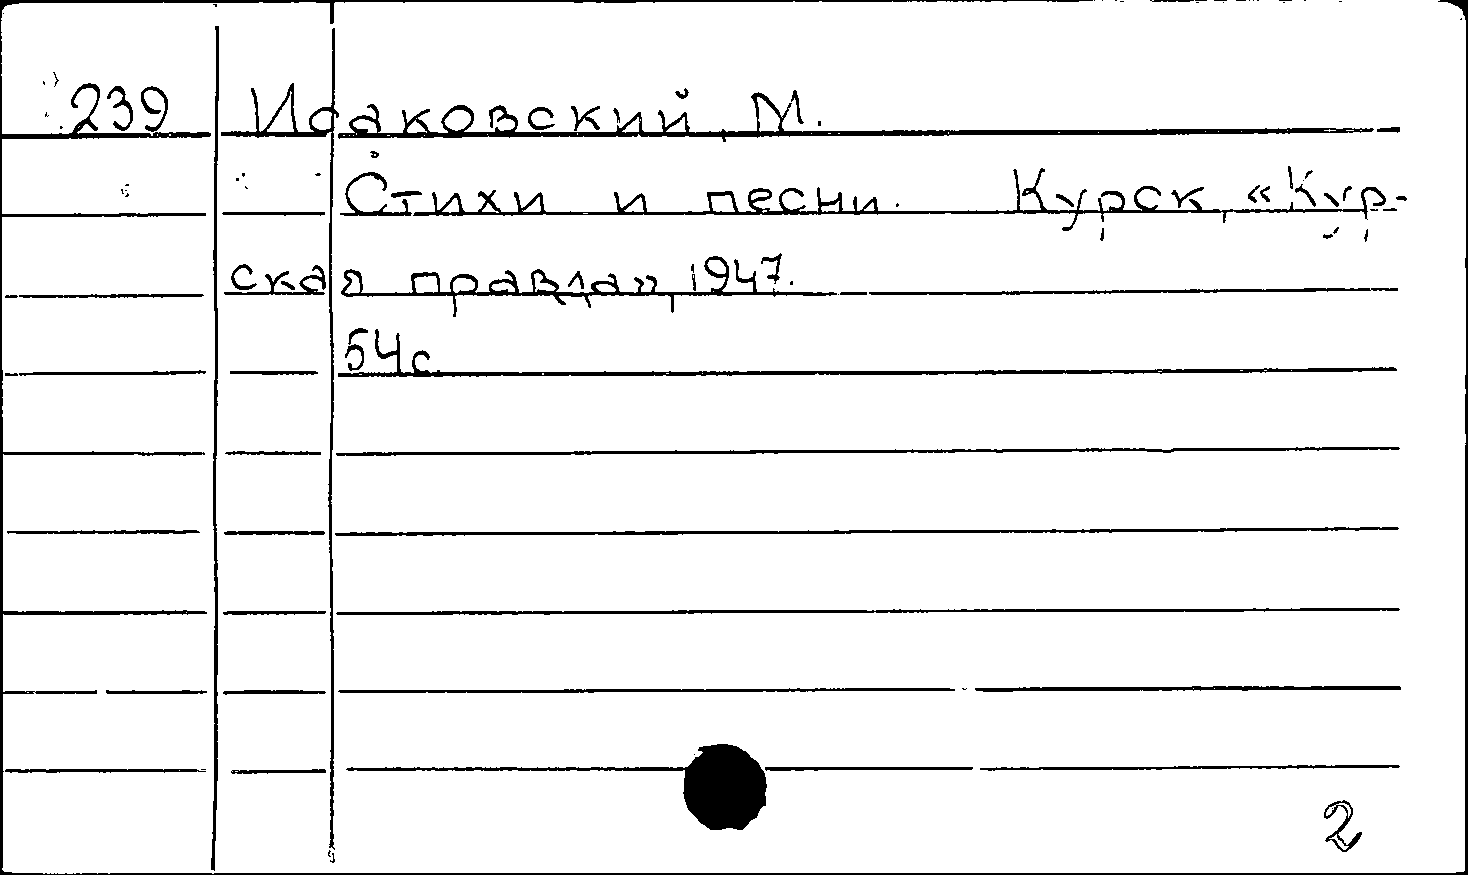 239 Исаковский, М.
Стихи и песни. Курск, «Кур-
ская правда», 1947.
54с.
2